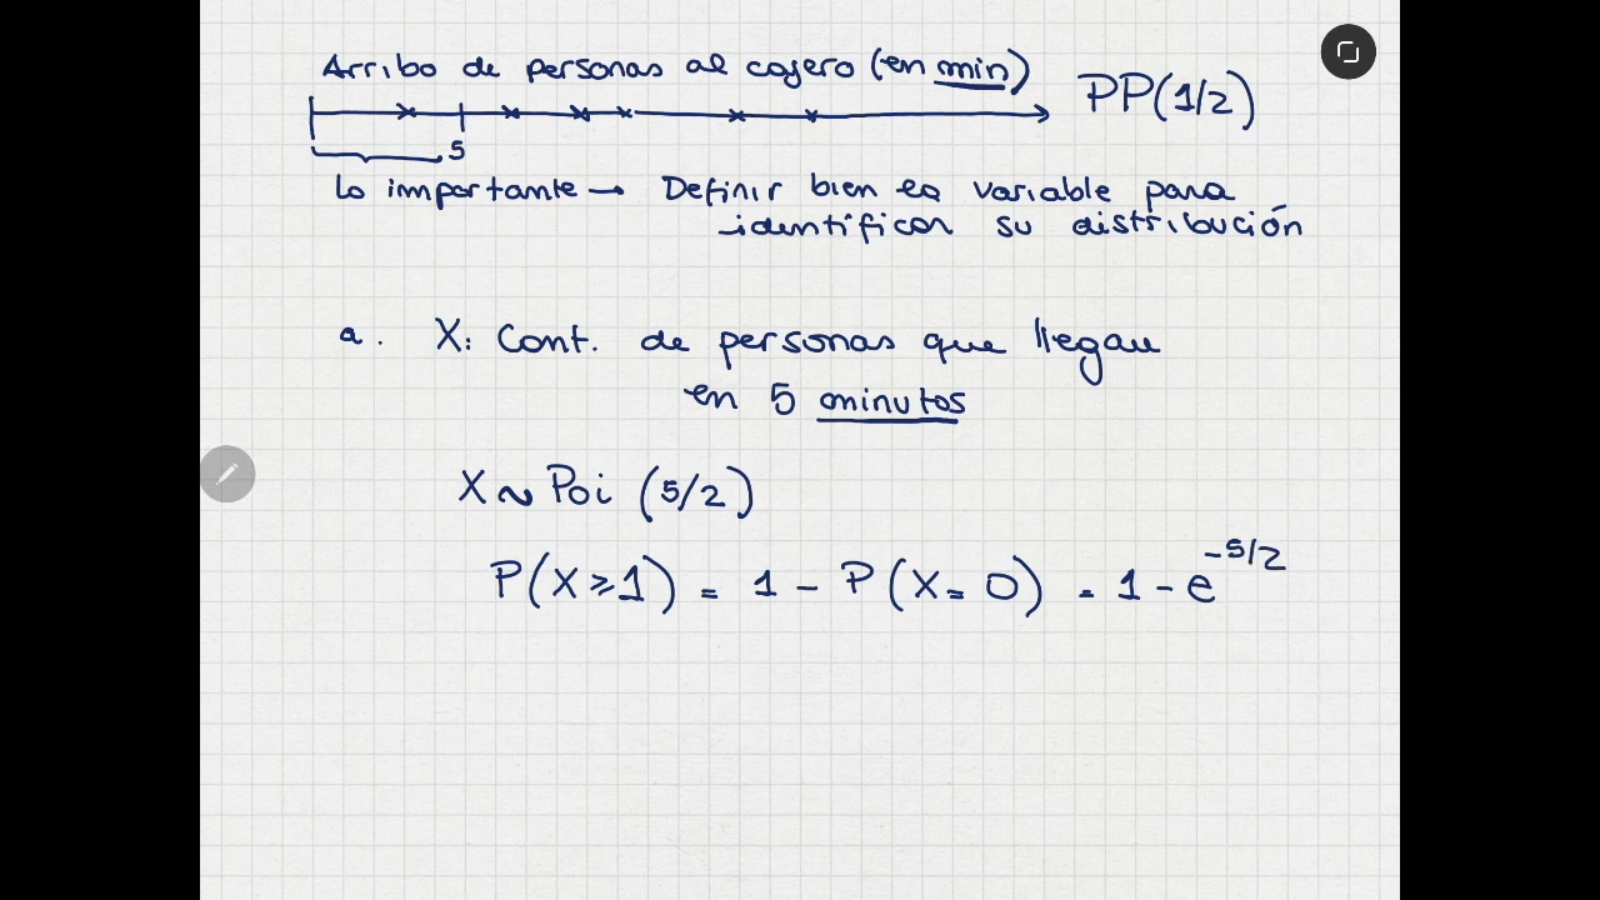 Arribo de personas al cajero (en min) PP(1/2)
5
Lo importante → Definir bien la variable para
identificar su distribución
a. X: Cant. de personas que llegan
en 5 minutos
X ~ Poi (5/2)
P(X ≥ 1) = 1 - P(X = 0) = 1 - e^{-5/2}